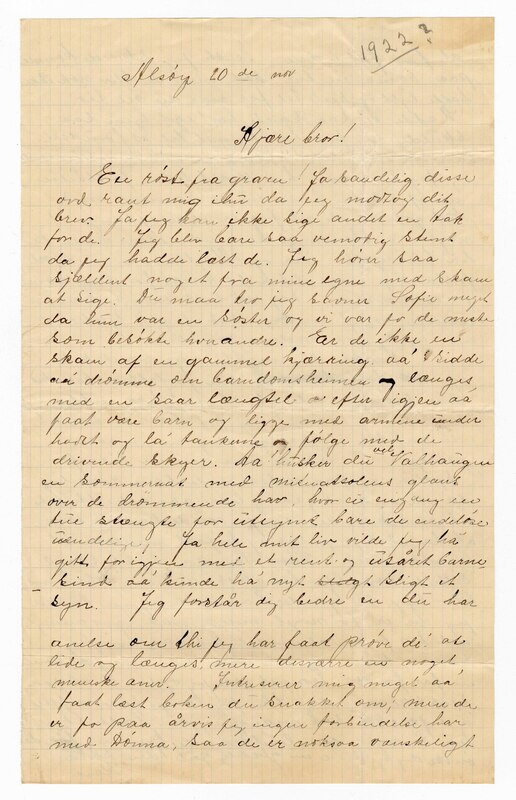 1922?
Alsöy 20 de nov
Kjære bror!
En röst fra graven! Ja sandelig disse
ord rant mig ihu da jeg modtog dit
brev. Ja jeg kan ikke sige andet en tak
for de. Jeg blev bare saa vemodig stemt
da jeg hadde læst de. Jeg hörer saa
sjældent noget fra mine egne med skam
at sige. Du maa tro jeg savner Sofie meget
da hun var en söster og vi var jo de meste
som besökte hverandre. Er de ikke en
skam af en gammel kjærring aa sidde
aa drömme om barndomsheimen og længes
med en saar længsel efter igjen aa
faat være barn og ligge med armene under
hodet og la tankene fölge med de
drivende skyer. Aa husker du vel Valhaugen
en sommernat med midnatsolens glans
over de drömmende hav, hvor ei engang en
tue stengte for utsynet bare de endelöse
uendelige. Ja hele mit liv vilde jeg ha
gitt for igjen med et rent og usåret barne
sind aa kunde ha nyt sligt et
syn. Jeg forstår dig bedre en du har
anelse om thi jeg har faat pröve de at
lide og længes mere desværre en noget
menneske aner. Intreserer mig meget aa
faat læst boken du snakket om, men de
er jo paa årvis jeg ingen forbindelse har
med Dönna, saa de er noksaa vanskeligt